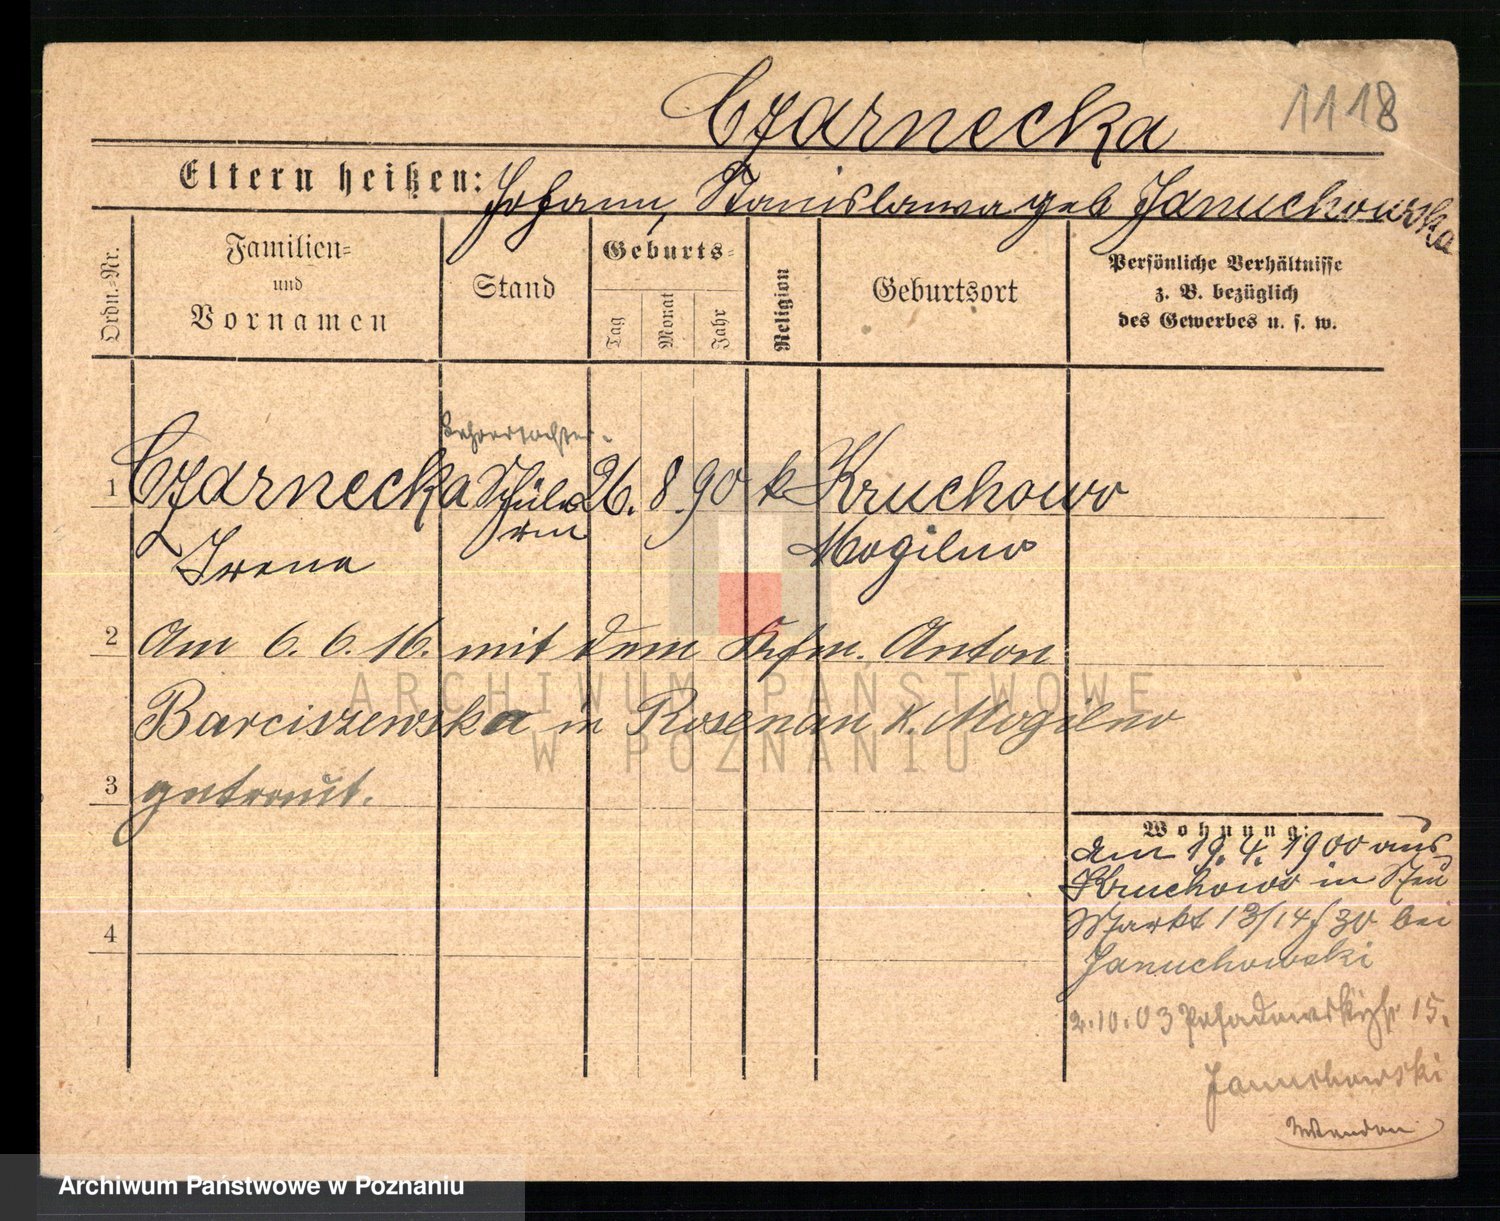 Czarnecka 1118
Eltern heißen: Johann, Stanislawa geb Januchowska
Ordn.-Nr.
Familien-
und
Vornamen
Stand
Geburts-
Tag
Monat
Jahr
Religion
Geburtsort
Persönliche Verhältnisse
z. B. bezüglich
des Gewerbes u. s. w.
Lehrertochter
1 Czarnecka Schüle 26. 8. 90 k Kruchowo
rin
Irena Mogilno
2 Am 6. 6. 16. mit dem Kfm. Anton
Barciszewska in Rosenau K. Mogilno
3 getraut.
4
Wohnung:
Am 19. 4. 1900 aus
Kruchowo in Neu
Markt 13/14 / 30 bei
Januchowski
2.10.03 15.
Januchowski
ARCHIWUM PAŃSTWOWE
W POZNANIU
Archiwum Państwowe w Poznaniu